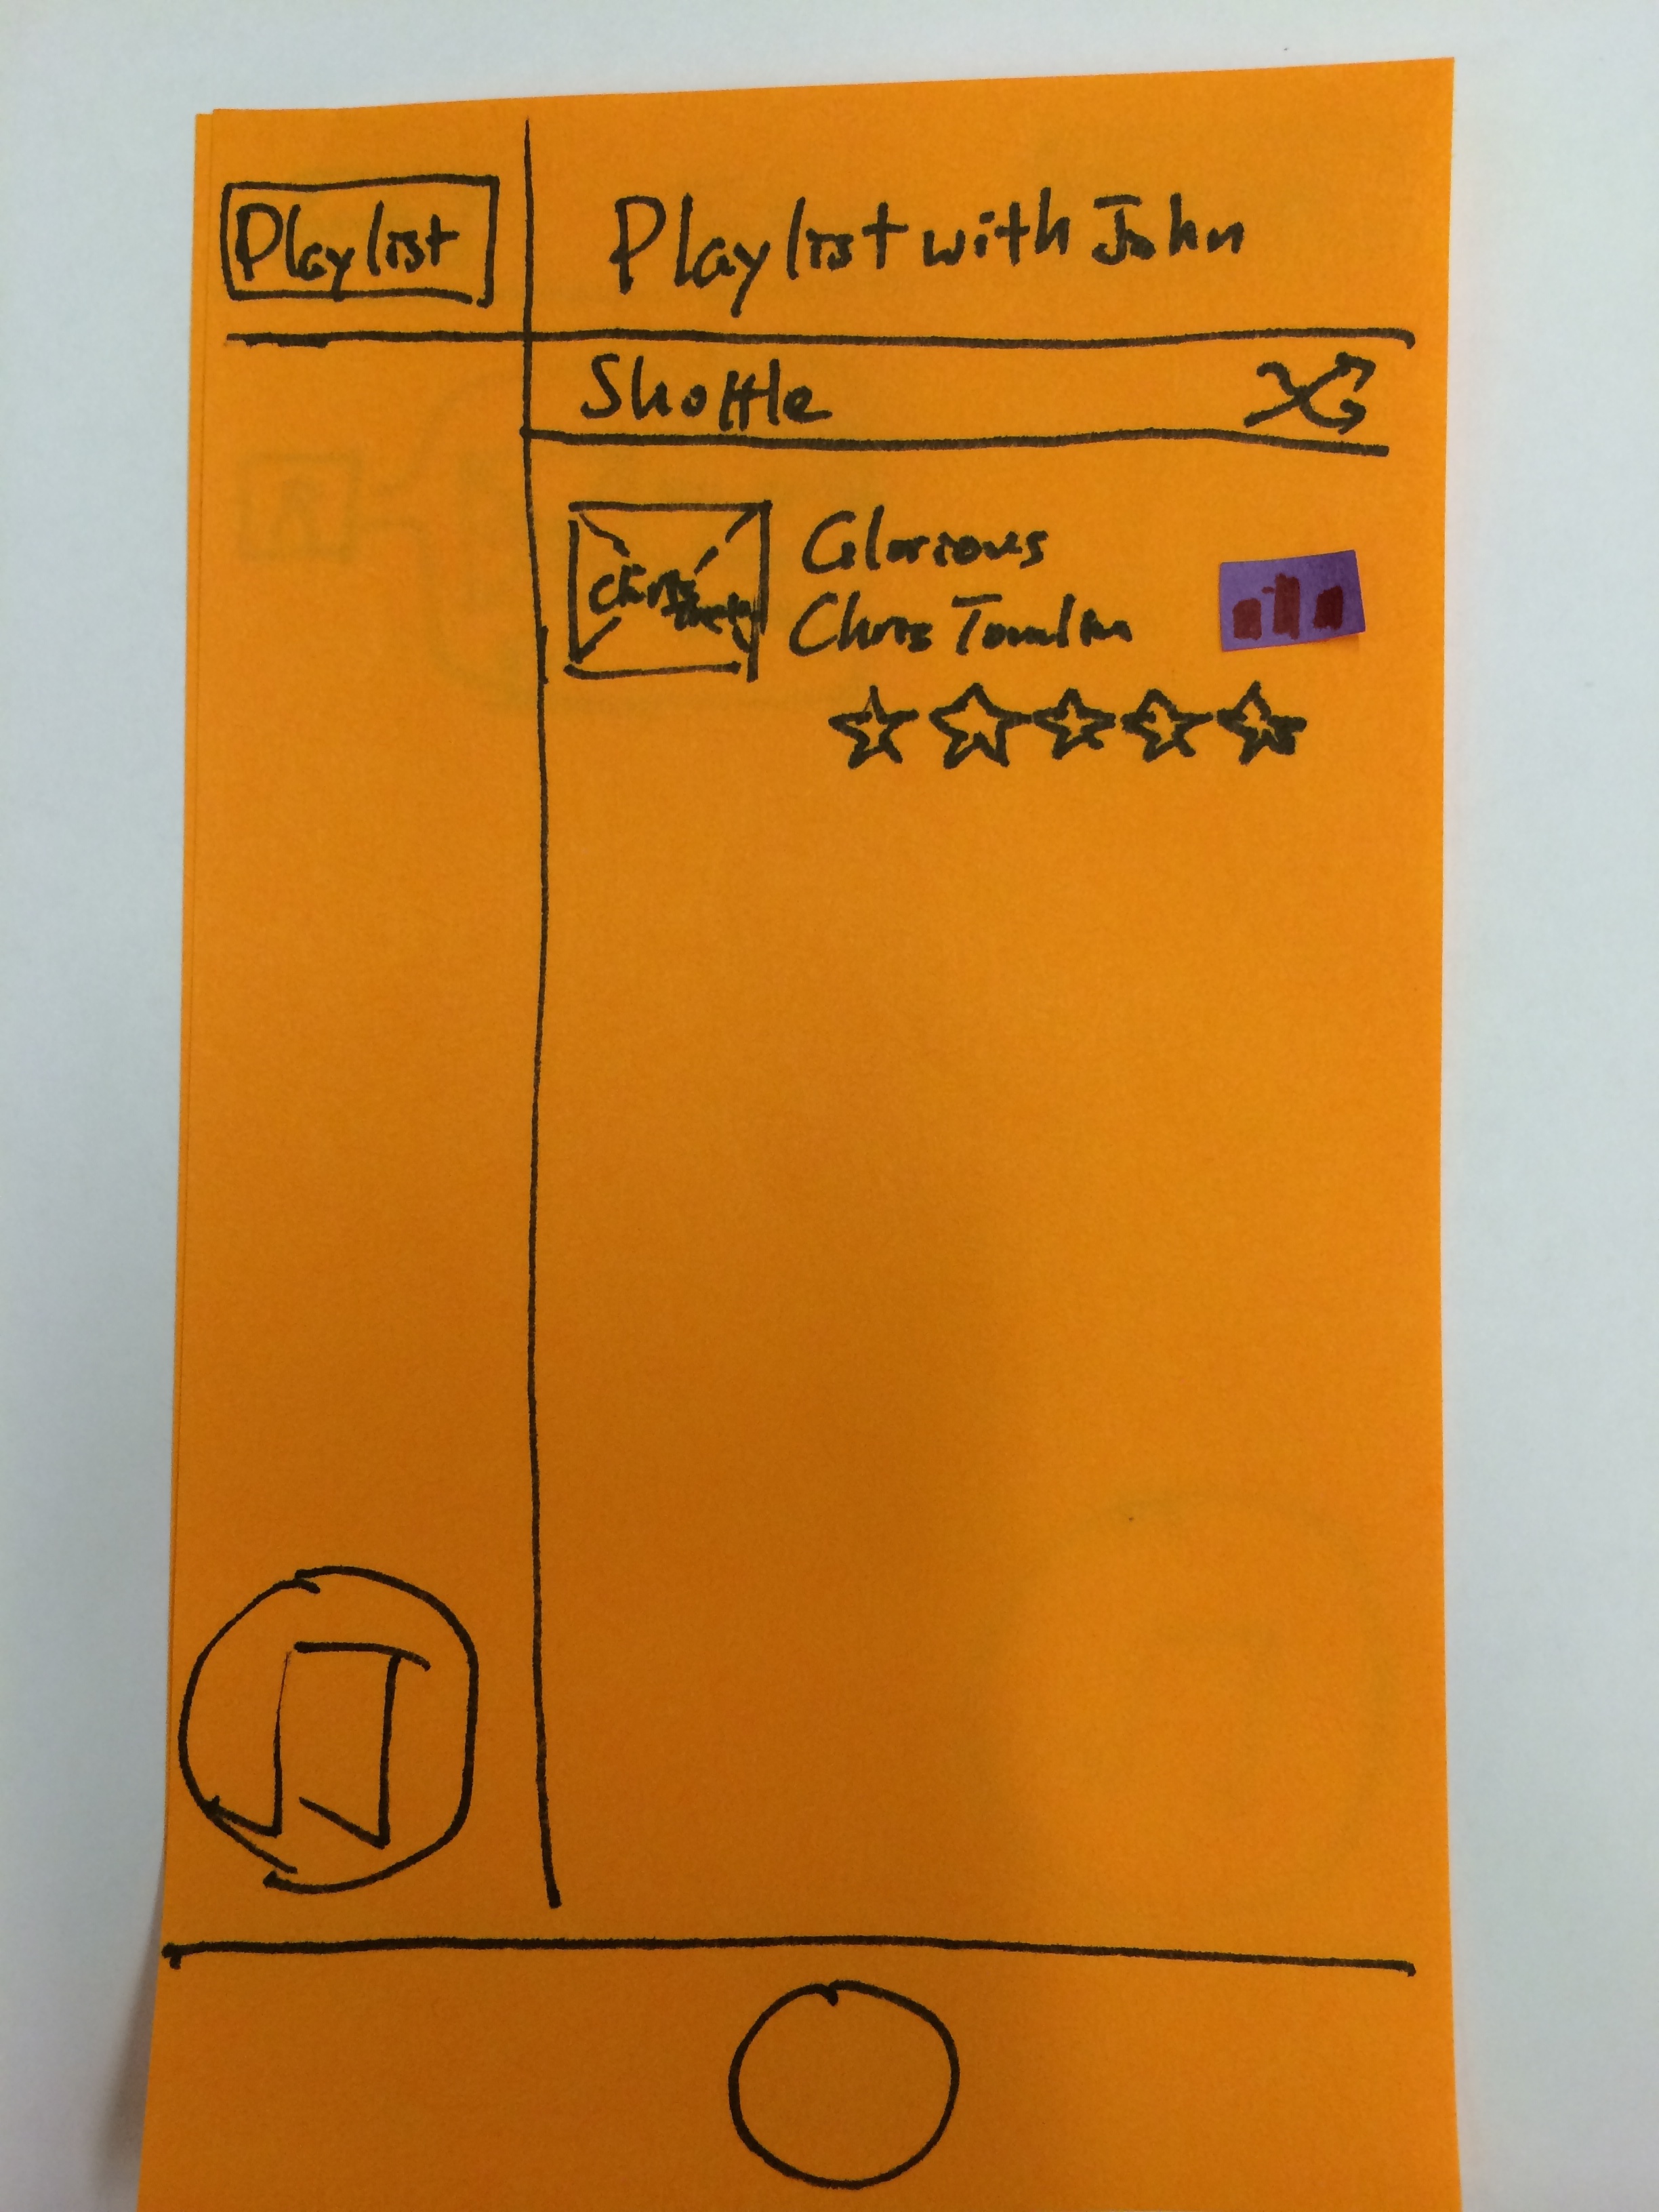 Playlist
Playlist with John
Shuffle
Chris
Glorious
Chris Tomlin